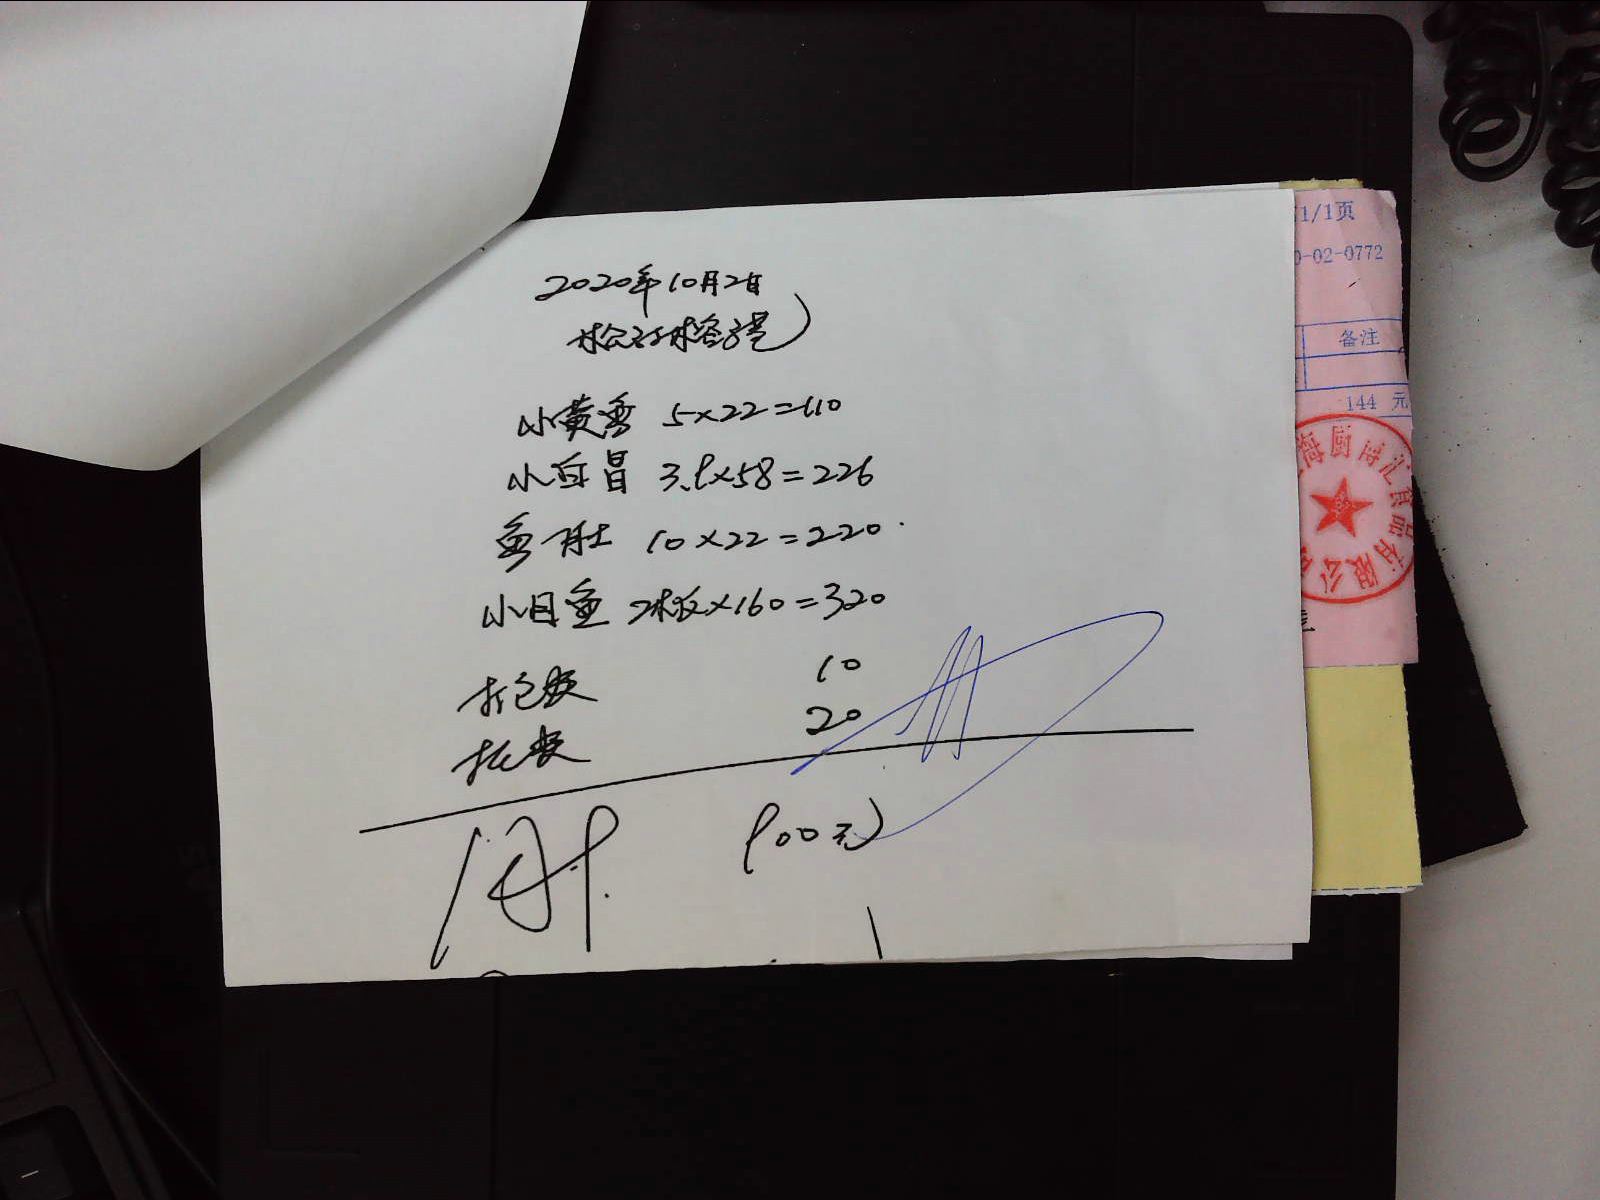 2020年10月2日
小黄鱼 5×22=110
小白昌 3.9×58=226
鱼肚 10×22=220
小目鱼 2板×160=320
打包费 10
托费 20
900元
1/1页
0-02-0772
备注
144 元
海厨海汇食品有限公司